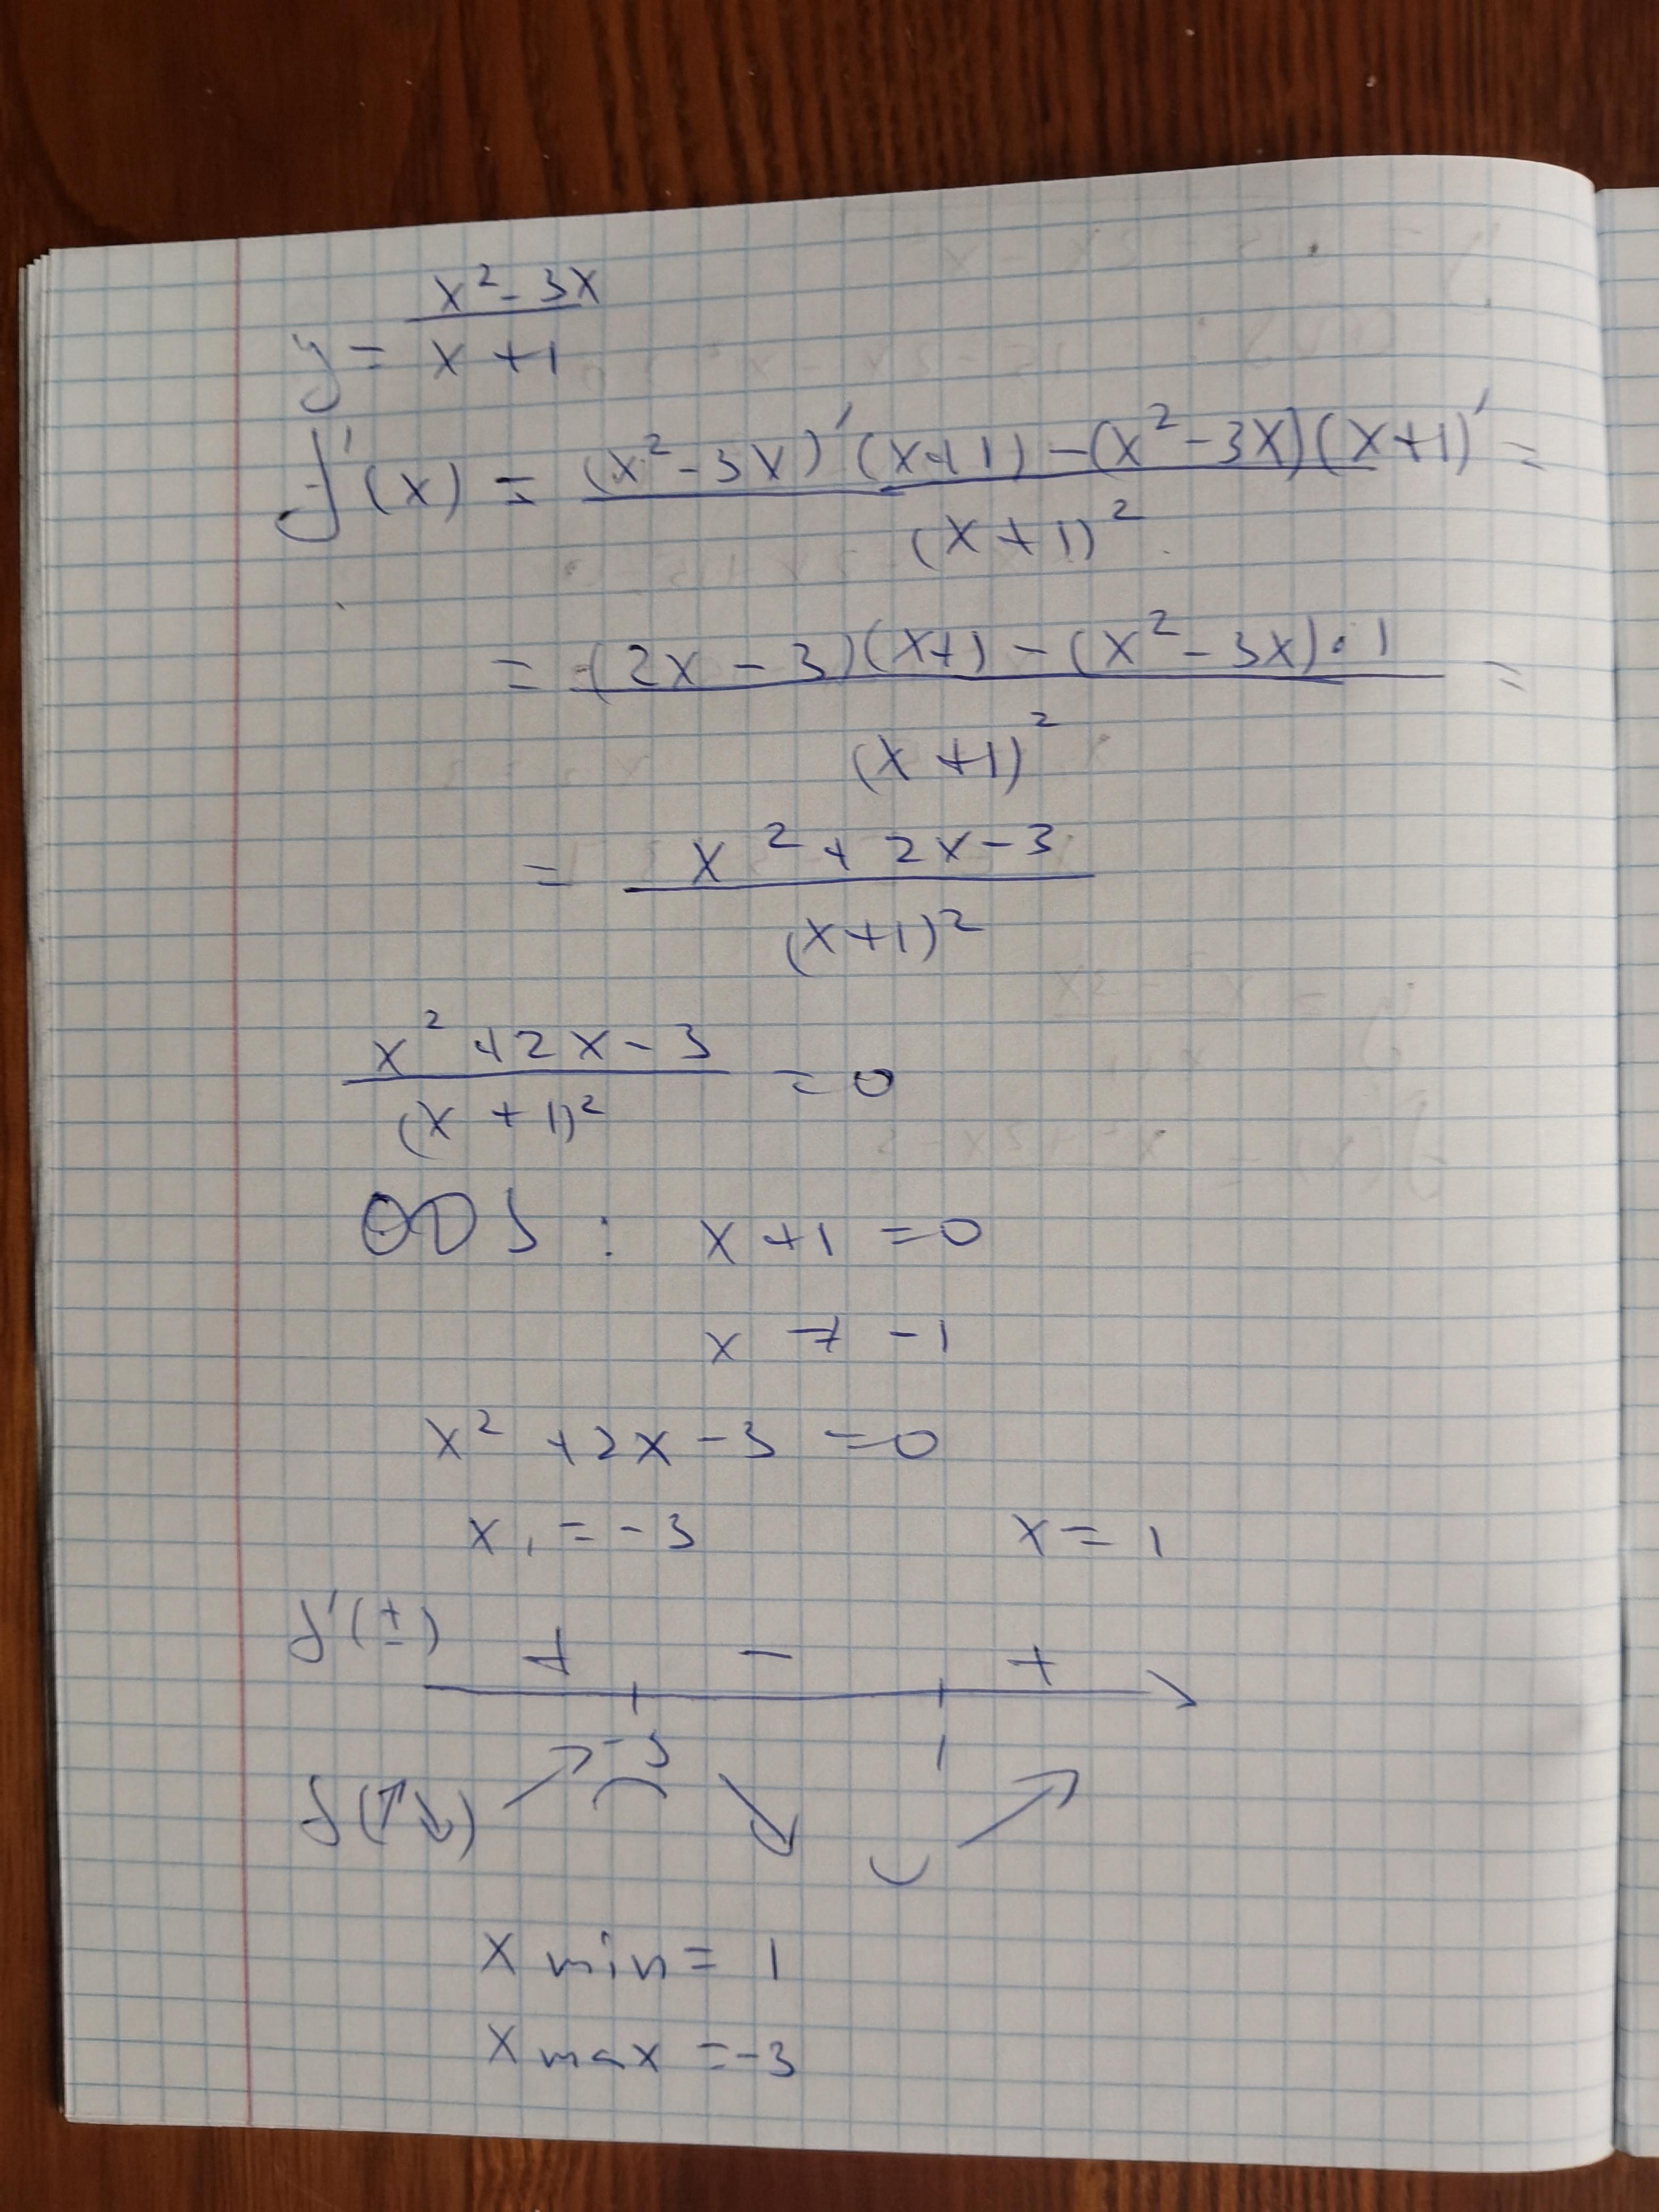 y = (x² - 3x)/(x + 1)
f'(x) = ((x² - 3x)'(x+1) - (x² - 3x)(x+1)')/(x+1)² =
= ((2x - 3)(x+1) - (x² - 3x)·1)/(x+1)² =
= (x² + 2x - 3)/(x+1)²
(x² + 2x - 3)/(x + 1)² = 0
ОДЗ: x + 1 = 0
x ≠ -1
x² + 2x - 3 = 0
x₁ = -3 x = 1
f'(±) + - +
-3 1
f(↑↓) ↗ ⌒ ↘ ◡ ↗
x min = 1
x max = -3